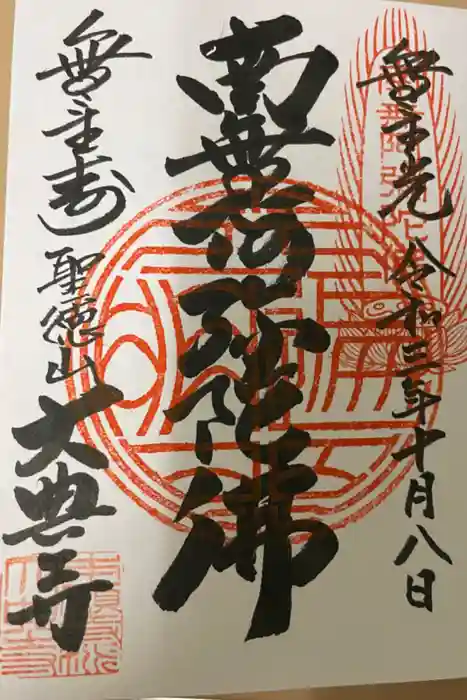 無量光 令和三年十月八日
南無阿弥陀佛
無量寿 聖徳山 大典寺